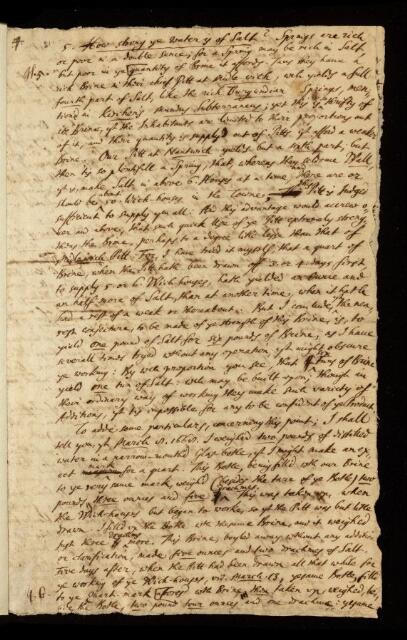 4.
5. How strong ye Water is of Salt? Springs are rich
or poor in a double sence; for a Spring may be rich in Salt
but poor in ye quantity of Brine it affords. Thus they have a
rich Brine in their chief Pitt at Middle wich, wch yeilds a full
fourth part of Salt, like the rich Burgundian Springs, men-
tiond in Kirchers Mundus Subterraneus; yet this is so thrifty of
its Brine, yt the Inhabitants are limited to their proportions out
of it, and their quantity is supply'd out of Pitts yt afford a weaker
Brine. Our Pitt at Nantwich yeilds but a sixth part; but
then tis so plentifull a Spring, that, whereas they seldome Wall
yt is, make Salt in above 6 Houses at a time, and there are or
should be about 50 Wich-houses in the Towne; this Pitt is judged
sufficient to supply you all. But this advantage would accrew o-
ver and above, that such quick use of ye Pitt extremely strengthens
the Brine, perhaps to a degree little less than that of
Middle wich Pitt. For I have tried it myself, that a quart of
Brine, when the Pitt hath been drawn off 3 or 4 days, first
to supply 5 or 6 Wich-houses, hath yeilded an ounce and
an half more of Salt, than at another time, when it hath
had a rest of a week or thereabouts. But I conclude then, the near-
est conjecture, to be made of ye strength of this Brine, is, to
yeild one pound of Salt for six pounds of Brine, as I have
severall times tryed without any operation, yt might obscure
ye working: By wch proportion you see, that 6 Tuns of Brine
yeild one tun of Salt: wch may be built upon, though in
their ordinary way of working they make such variety of
Additions, yt tis impossible for any to be confident of ye Product.
To adde some particulars, concerning this point; I shall
tell you, yt March 8. 1668/9. I weighed two pounds of distilled
water in a narrow-mouthed Glas-bottle, yt I might make an ex-
act mark for a quart. This Bottle, being filled wth our Brine
to ye very same mark, weighed (besides the tare of ye Bottle) two
pounds, three ounces and five drachms. This was taken up, when
the Wich-houses but began to worke, so yt the Pitt was but little
drawn. I filled ye Bottle wth the same Brine, and it weighed
just three drachms more. This Brine, boyled away without any addition
or clarification, made five ounces and two drachmes of Salt.
Five days after, when the Pitt had been drawn all that while for
ye working of ye Wich-houses, viz. March 13, ye same Bottle, filled
to ye Quart-mark wth Brine then taken up, weighed, be-
side the Bottle, two pound four ounces and one drachme: ye same